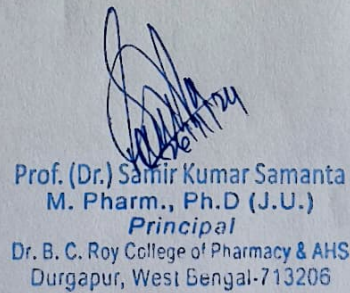 26/11/24
Prof. (Dr.) Samir Kumar Samanta
M. Pharm., Ph.D (J.U.)
Principal
Dr. B. C. Roy College of Pharmacy & AHS
Durgapur, West Bengal-713206